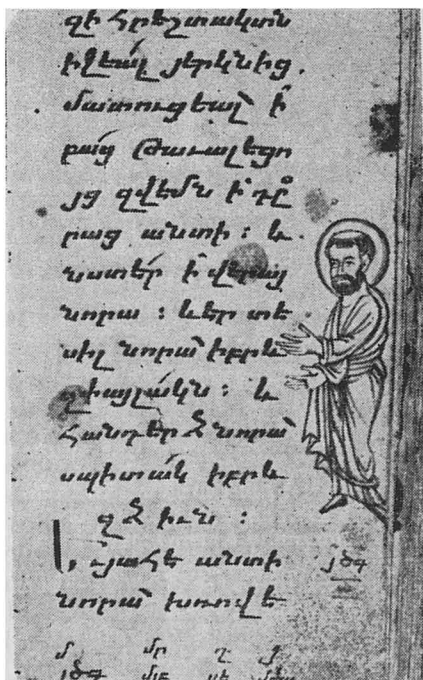 զի հրեշտակ տն
իջեալ յերկնից.
մատուցեալ ի
բաց թաւալեցո
յց զվեմն ի դը
րաց անտի : և
նստէր ի վերայ
նորա : և էր տե
սիլ նորա իբրև
զփայլակն : և
հանդերձ նորա
սպիտակ իբրև
զձիւն :
յահե անտի
նորա խռովե